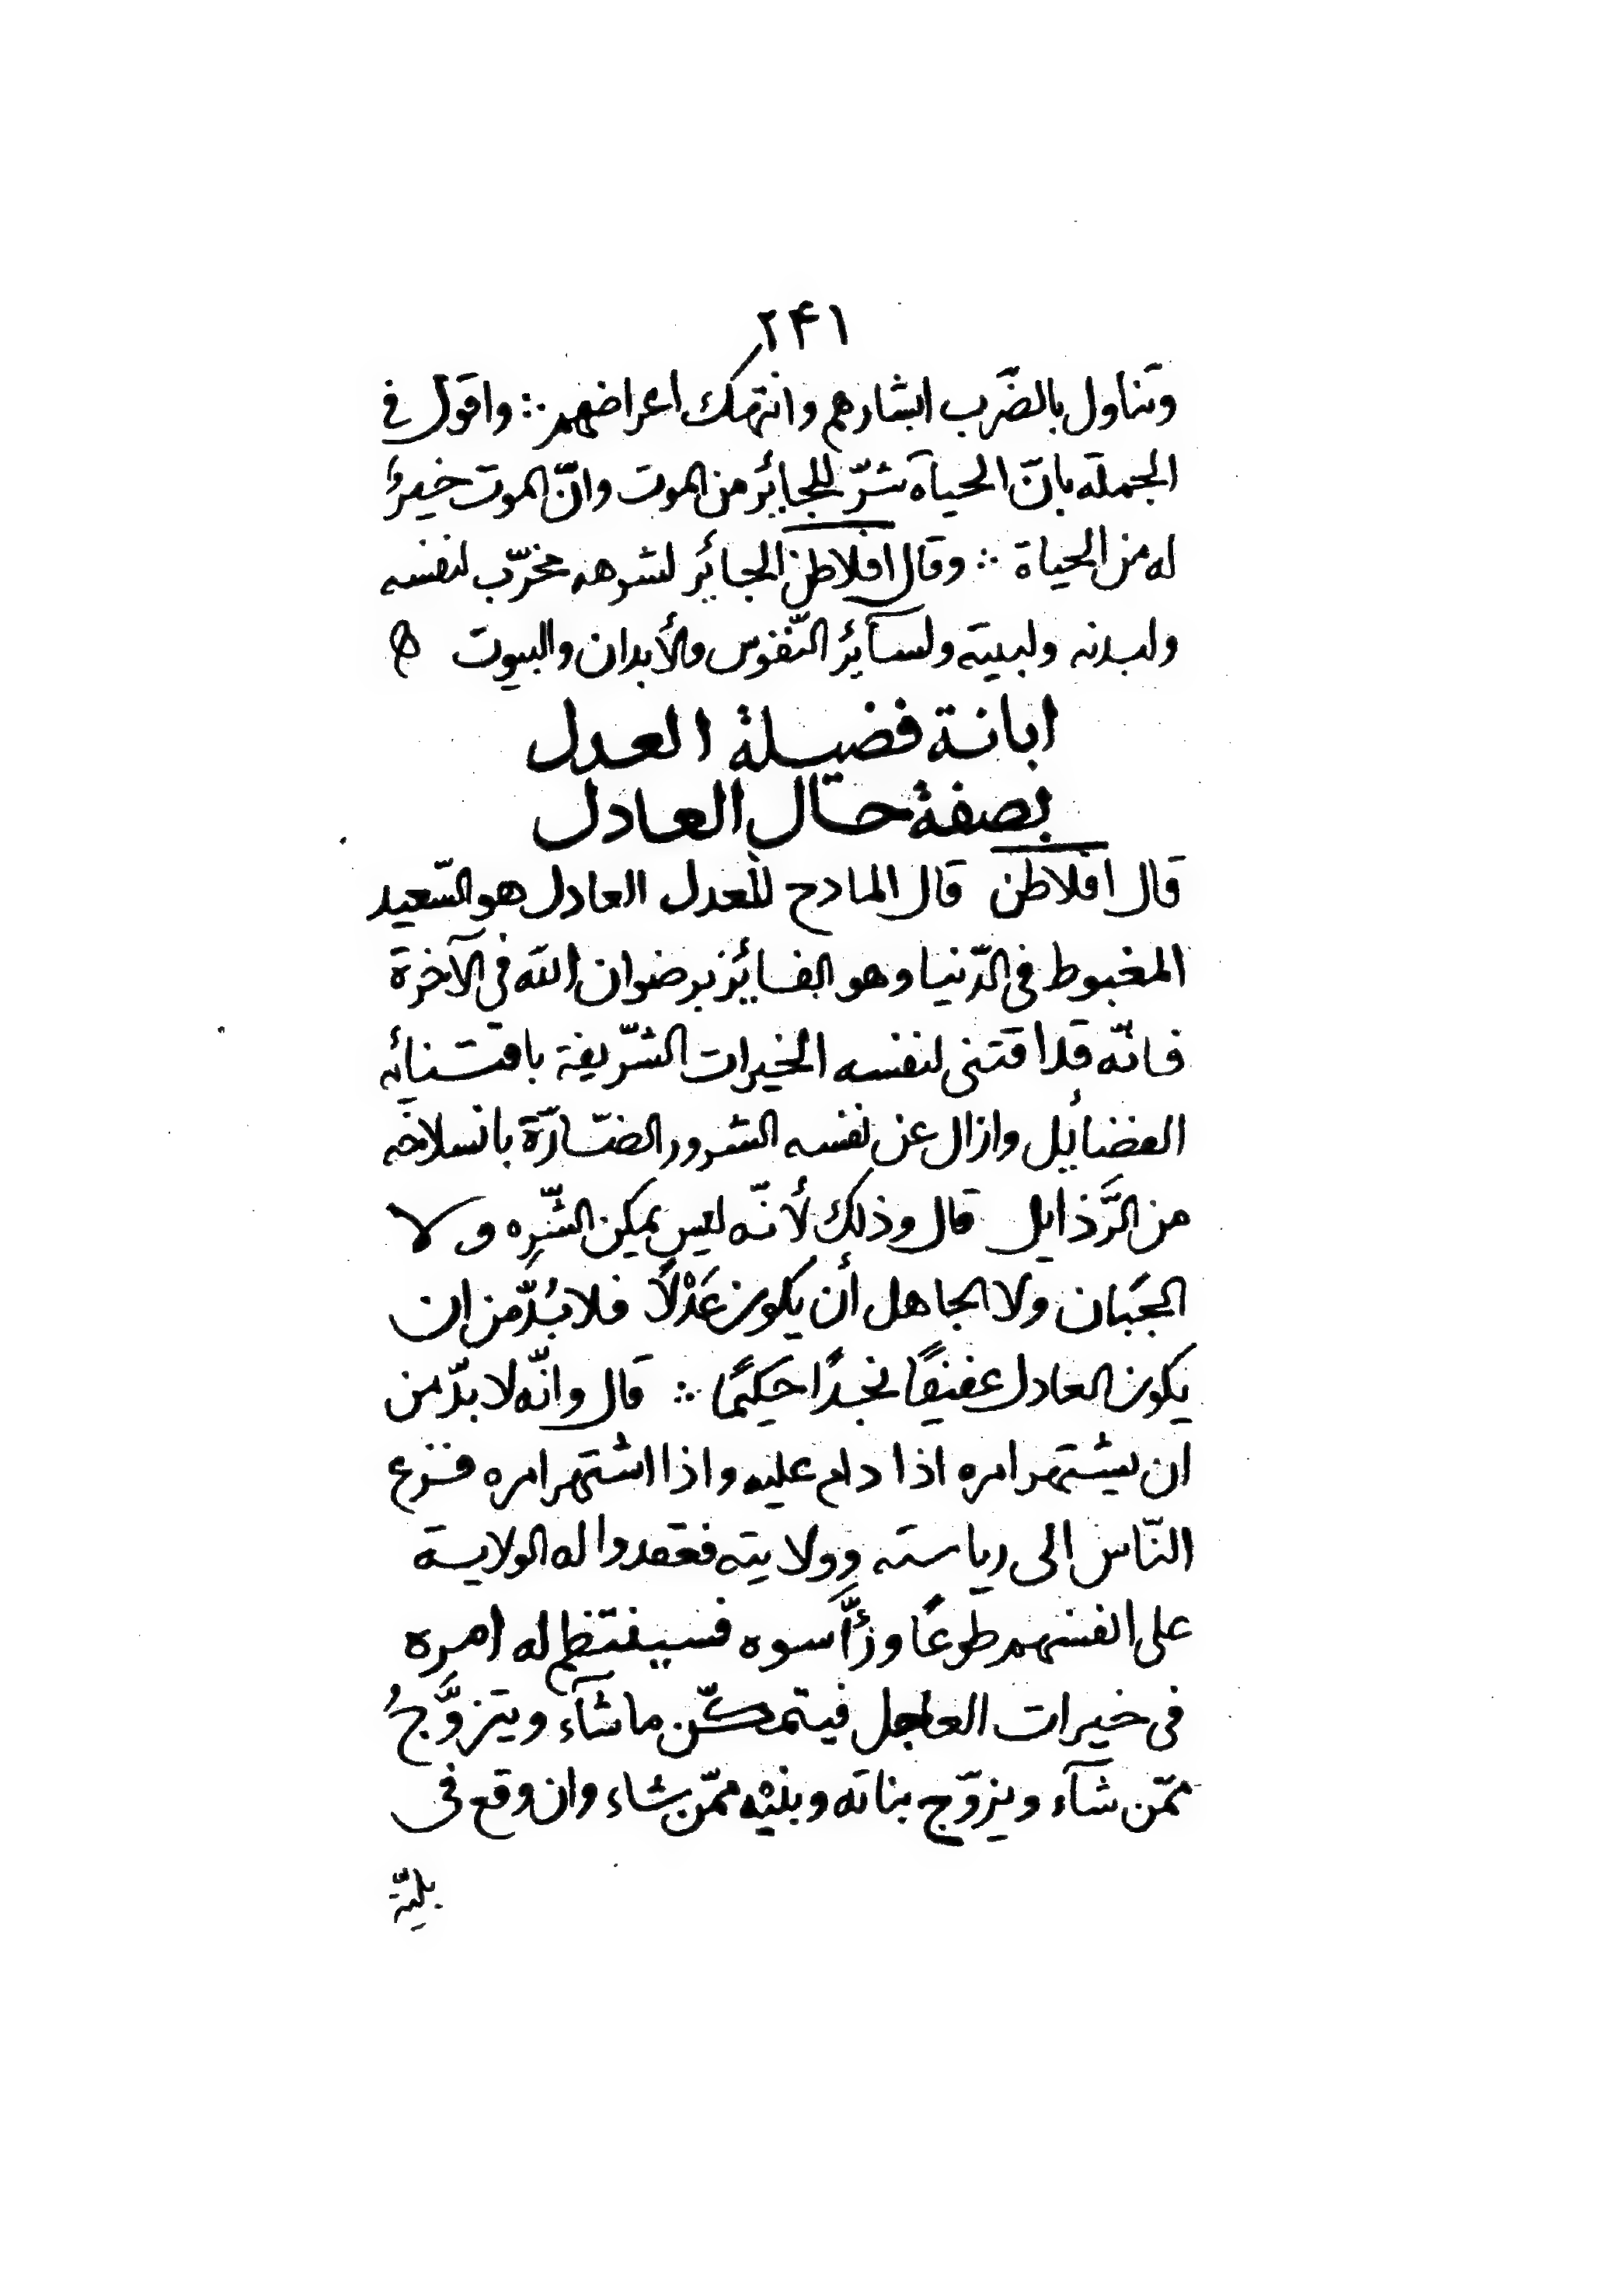 ٢۴١
وتناول بالضَرب ابشارهم وانتهك اعراضهم ∴ واقول فى
الجملة بانّ الحياة شرّ للجائر من الموت وانّ الموت خيرٌ
له من الحياة ∴ وقال افلاطن الجائر لشرهه مخرّب لنفسه
ولبدنه ولبيته ولسآئر النّفوس والأبدان والبيوت ه
ابانة فضيلة العدل
بصفة حال العادل
قال افلاطن قال المادح للعدل العادل هو السّعيد
المغبوط فى الدّنيا وهو الفائز برضوان الله فى الآخرة
فانّه قد اقتنى لنفسه الخيرات الشّريفة باقتنائه
الفضائل وازال عن نفسه الشرور الضّارّة بانسلاخه
من الرَّذايل قال وذلك لأنّه ليس يمكن الشّرِه ولا
الجَبان ولا الجاهل أن يكون عَدْلاً فلا بُدّ من ان
يكون العادل عفيفًا نجدًا حكيمًا ∴ قال وانّه لا بدّ من
ان يشتهر امره اذا دام عليه واذا اشتهر امره فزع
النّاس الى رياسته وولايته فعقدوا له الولاية
على انفسهم طوعًا ورَأَّسوه فسينتظم له امره
فى خيرات العاجل فيتمكّن ما شآء ويتزوَّجُ
ممّن شآء ويزوّج بناته وبنيْه ممّن شاء وان وقع فى
بليّة